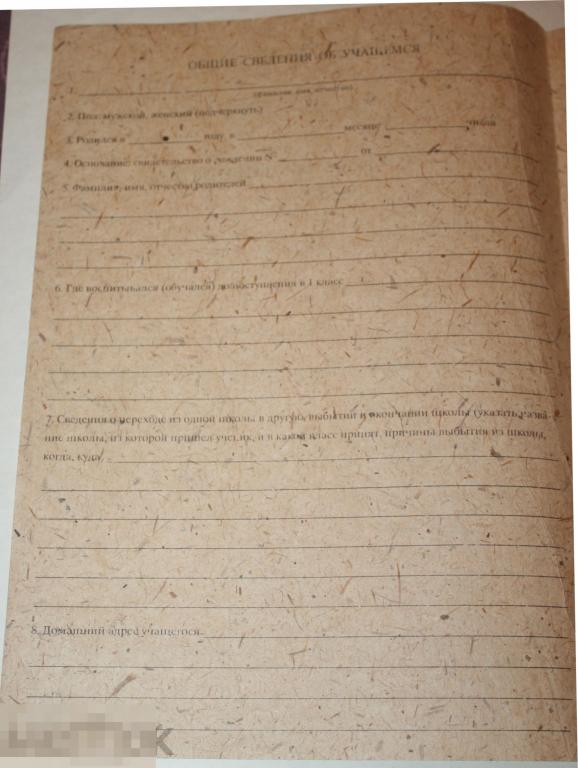 ОБЩИЕ СВЕДЕНИЯ ОБ УЧАЩЕМСЯ
1.
(фамилия, имя, отчество)
2. Пол: мужской, женский (подчеркнуть)
3. Родился в году, в месяце, числа
4. Основание: свидетельство о рождении № от
5. Фамилия, имя, отчество родителей
6. Где воспитывался (обучался) до поступления в 1 класс
7. Сведения о переходе из одной школы в другую, выбытии и окончании школы (указать назва-
ние школы, из которой пришел ученик, и в какой класс принят, причины выбытия из школы,
когда, куда)
8. Домашний адрес учащегося